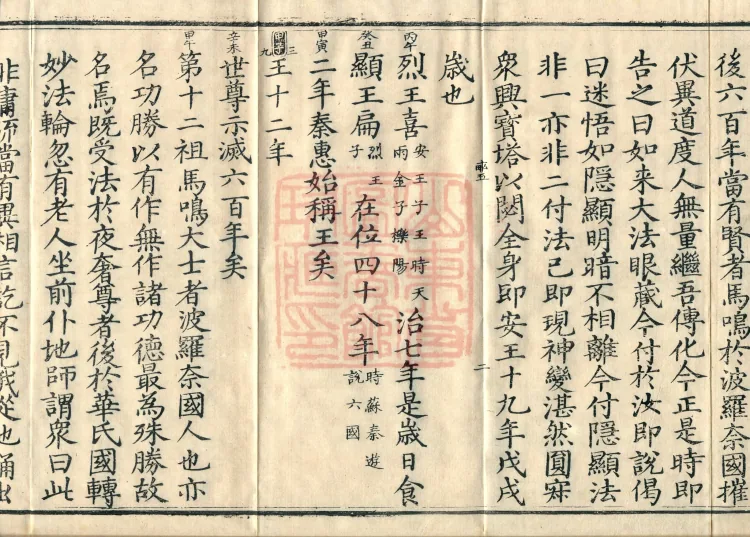 後六百年當有賢者馬鳴於波羅奈國摧
伏異道度人無量繼吾傳化今正是時即
告之曰如來大法眼藏今付於汝即說偈
曰迷悟如隱顯明暗不相離今付隱顯法
非一亦非二付法已即現神變湛然圓寂
衆興寶塔以閟全身即安王十九年戊戌
歲也
丙午
烈王喜
安王子王時天
雨金子櫟陽
治七年是歲日食
癸丑
顯王扁
烈王
子
在位四十八年
時蘇秦遊
說六國
甲寅
二年秦惠始稱王矣
三
九
王十二年
辛未
世尊示滅六百年矣
甲午
第十二祖馬鳴大士者波羅奈國人也亦
名功勝以有作無作諸功德最為殊勝故
名焉既受法於夜奢尊者後於華氏國轉
妙法輪忽有老人坐前仆地師謂衆曰此
非庸流當有異相言訖不見俄從地涌出
二